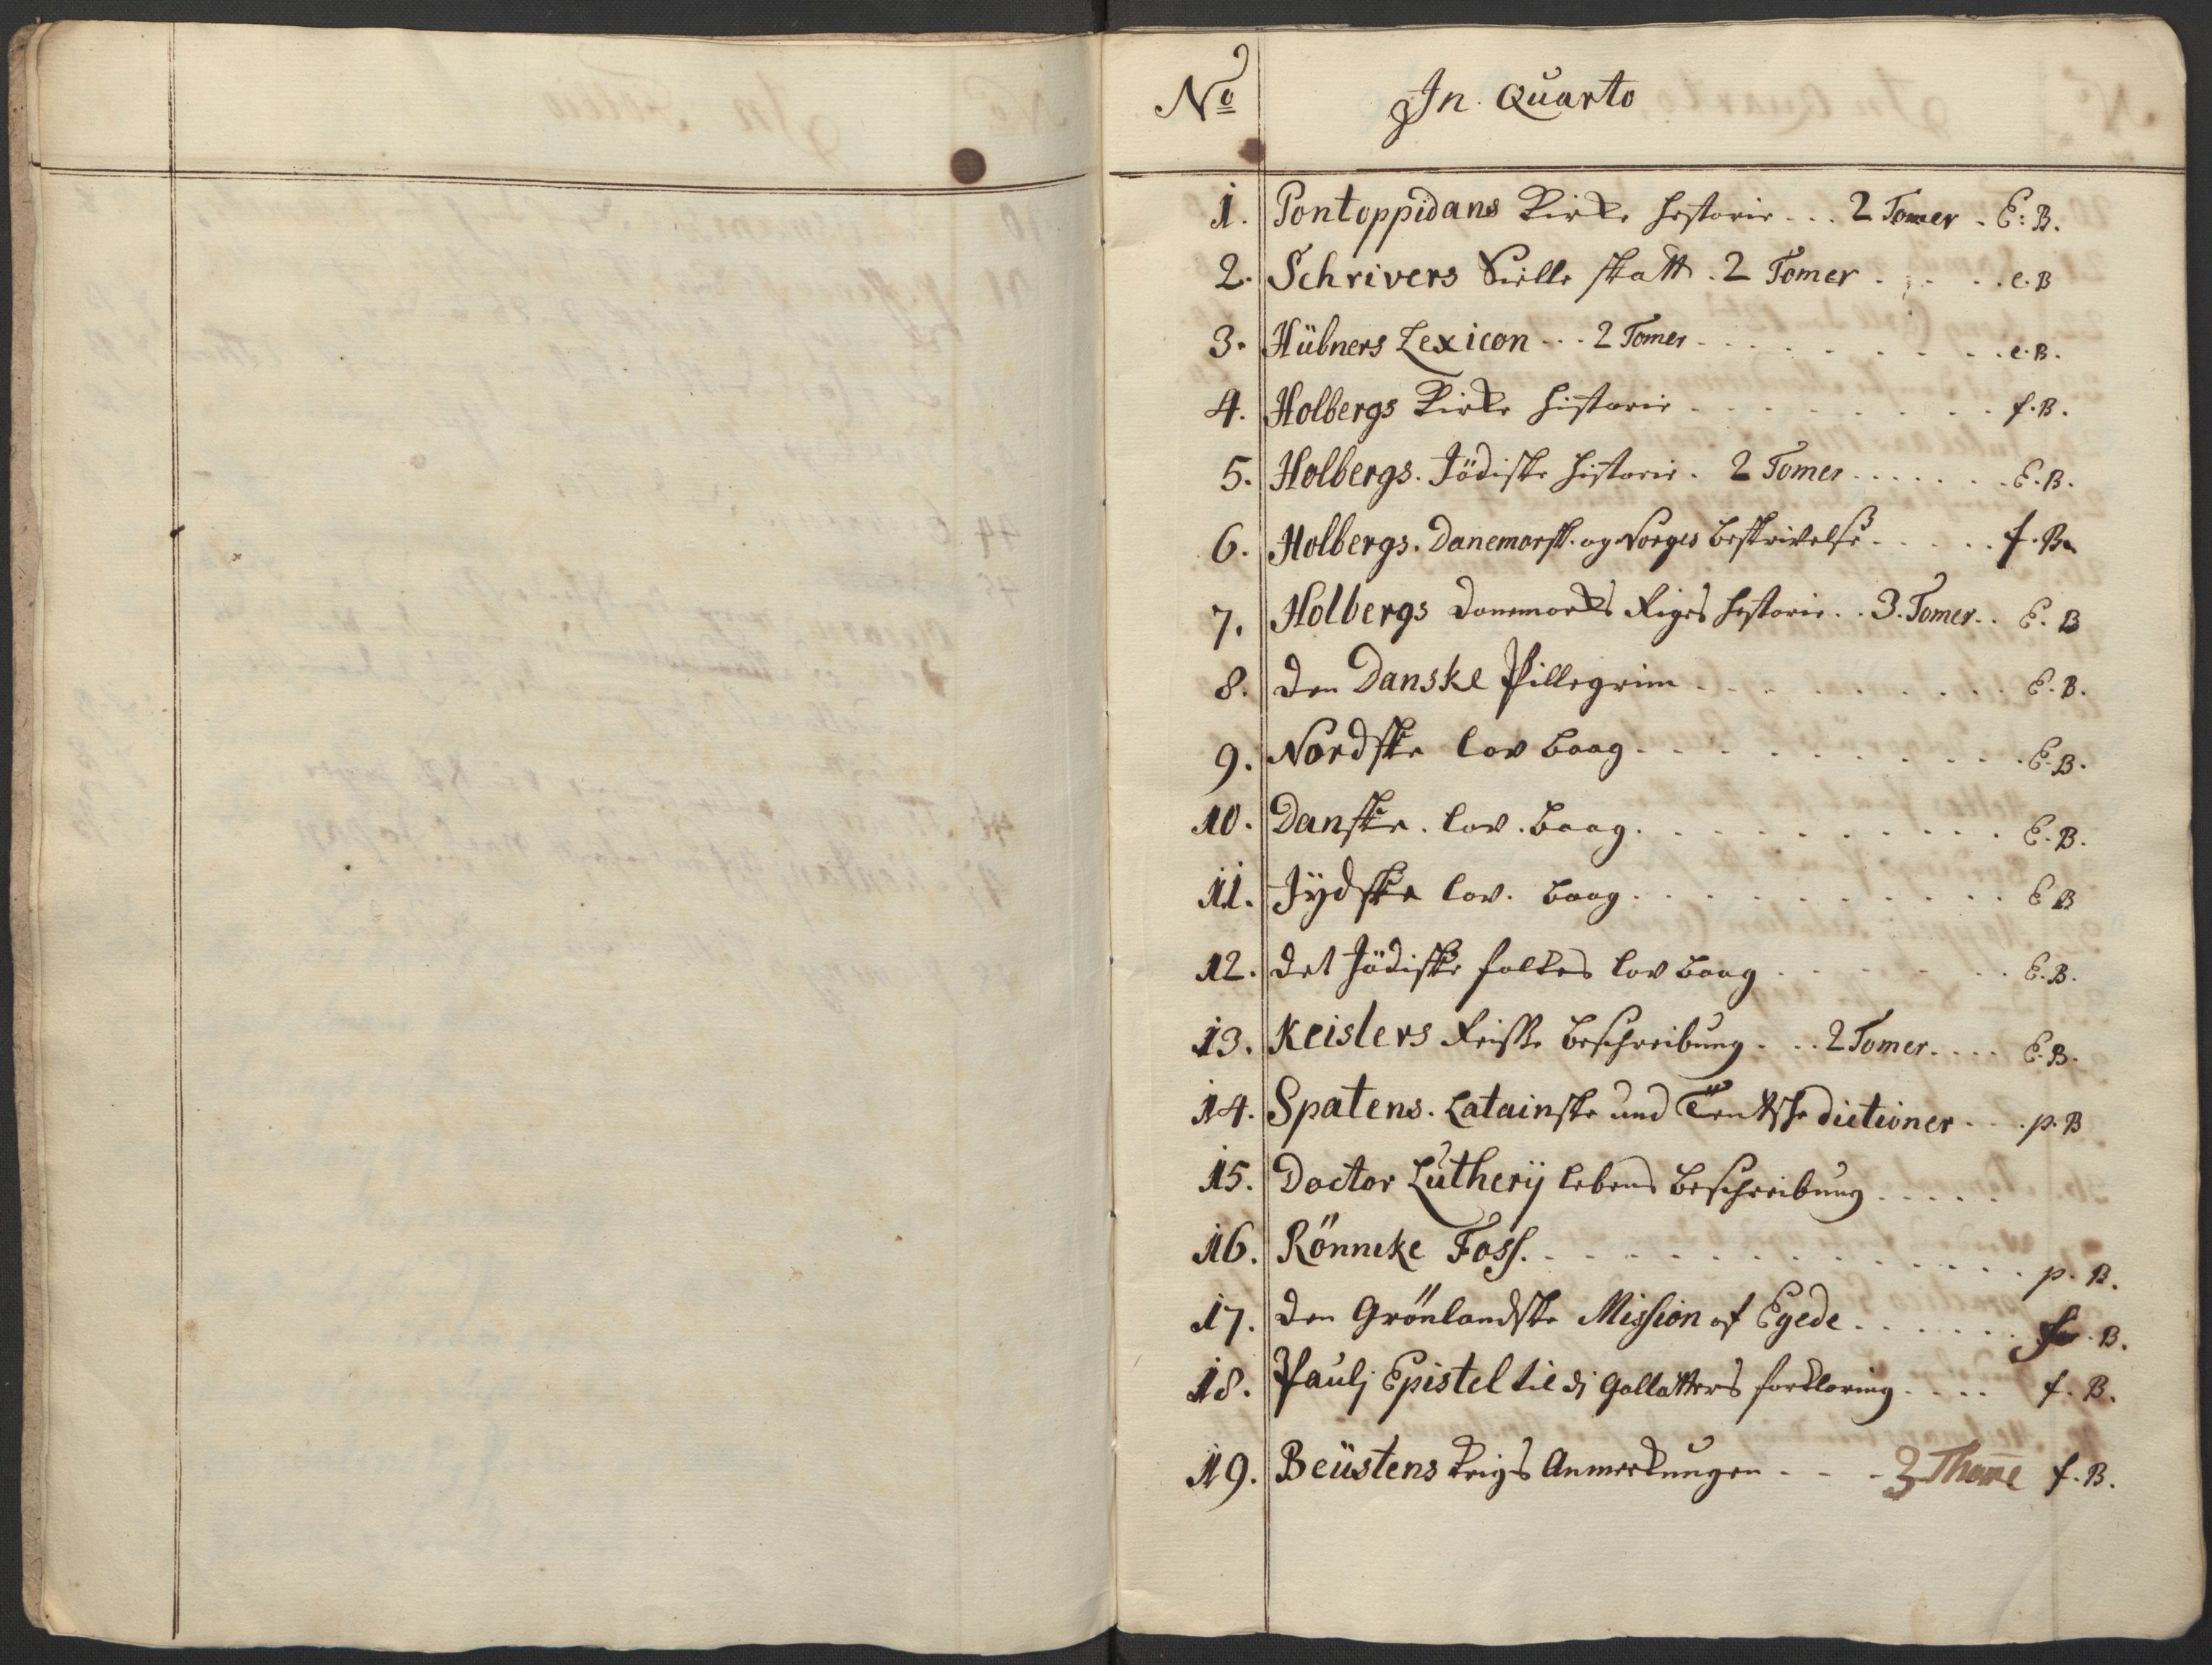 No In Quarto
1. Pontoppidans Kirke Historie ... 2 Tomer . E: B.
2. Schrivers Sielle skatt . 2 Tomer . . . . e. B
3. Hübners Lexicon . . . 2 Tomer . . . . . e. B.
4. Holbergs Kirke Historie . . . . . f. B.
5. Holbergs. Jödiske Historie . 2 Tomer . . . . . E. B.
6. Holbergs. Danemarsk. og Norges beskrivelse . . . . . f. B.
7. Holbergs Danemarks Riges Historie . . 3. Tomer . . E. B
8. Den Danske Pillegrim . . . . . E. B.
9. Nordske lov boog . . . . . E. B.
10. Danske. lov. boog. . . . . E. B.
11. Jÿdske lov. boog . . . . . E B
12. Det Jödiske folkes lov boog . . . . . E. B.
13. Keislers Reisse beschreibung . . . 2 Tomer. . . . E. B.
14. Spatens. Latainske und dictioner . . . p. B
15. Doctor Lutherij lebens beschreibung . . . . .
16. Rönneke Foss. . . . . . p. B.
17. Den Grönlandske Mission af Egede . . . . . B.
18. Paulj Epistel til dj Gallatters forklaring . . . . f. B.
19. Beüstens krigs Anmerkungen . . . 3 Thome f. B.